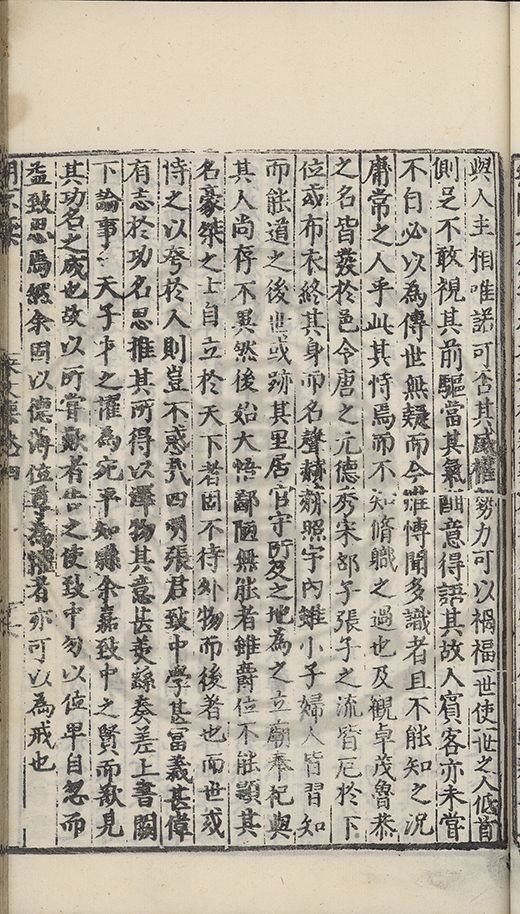 與人主相唯諾可否其威權勢力可以禍福一世使一世之人低首
側足不敢視其前驅當其氣酣意得語其故人賓客亦未嘗
不自必以為傳世無疑而今雖愽聞多識者且不能知之况
庸常之人乎此其恃焉而不知脩職之過也及觀卓茂魯恭
之名皆發於邑令唐之元德秀宋邵子張子之流皆厄於下
位或布衣終其身而名聲赫赫照宇内雖小子婦人皆習知
而能道之後世或跡其里居官守所及之地為之立廟奉祀與
其人尚存不異然後始大悟鄙陋無能者雖爵位不能顯其
名豪桀之士自立於天下者固不待外物而後著也而世或
恃之以夸於人則豈不惑哉四明張君致中學甚冨義甚偉
有志於功名思推其所得以澤物其意甚美繇奏差上書闕
下論事天子才之擢為宛平知縣余嘉致中之賢而歎見
其功名之成也故以所嘗歎者告之使致中勿以位卑自忽而
益致思焉然余固以德位尊為懼者亦可以為戒也